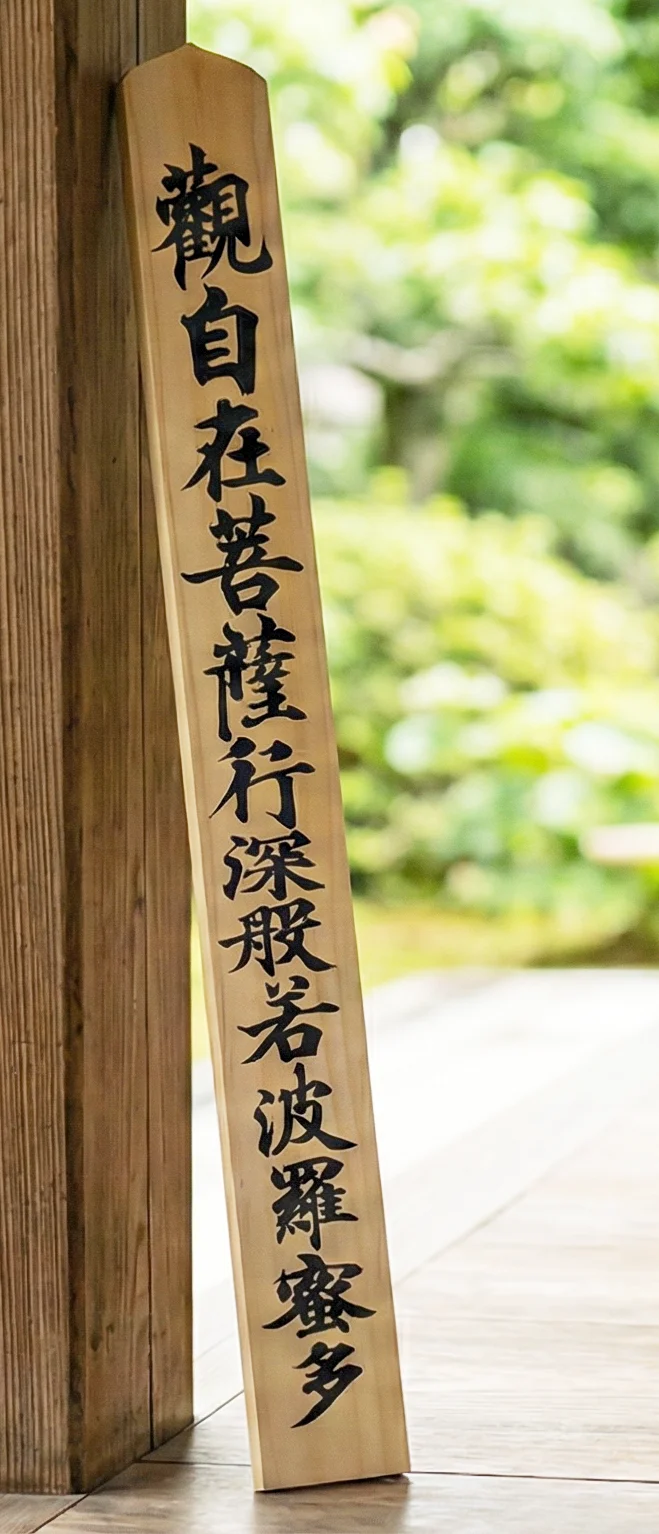 觀自在菩薩行深般若波羅蜜多